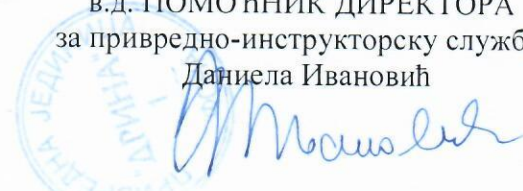 в.д. ПОМОЋНИК ДИРЕКТОРА
за привредно-инструкторску служб
Даниела Ивановић